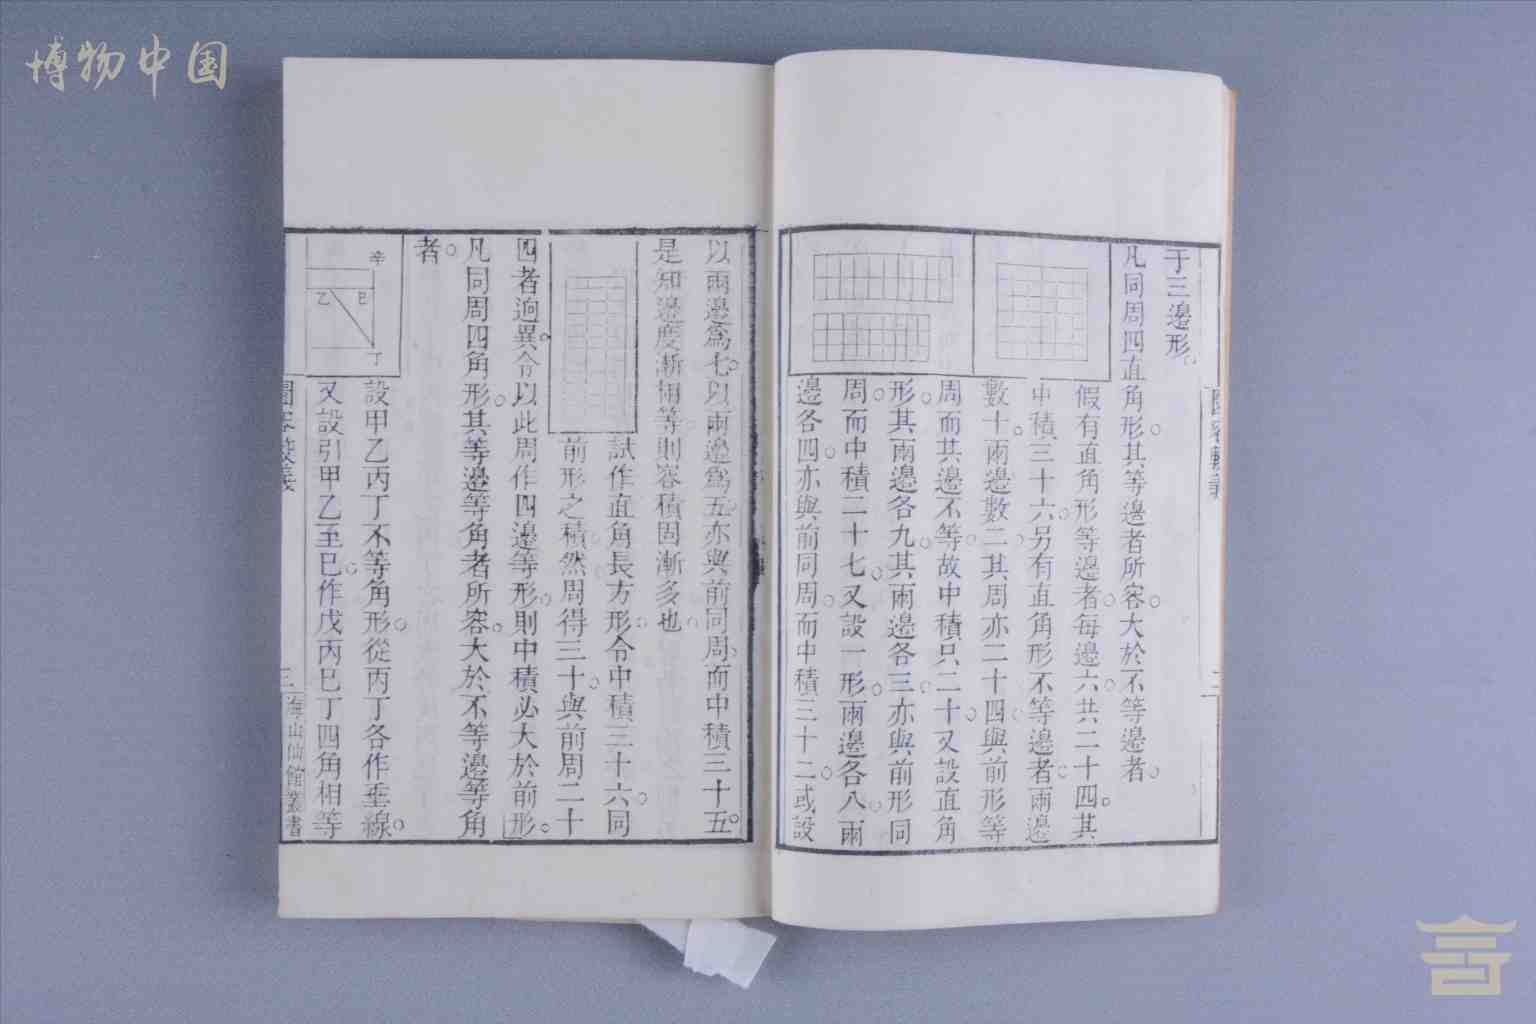 博物中国
于三邊形
凡同周四直角形其等邊者所容大於不等邊者
假有直角形等邊者每邊六共二十四其
中積三十六另有直角形不等邊者兩邊
數十兩邊數二其周亦二十四與前形等
周而其邊不等故中積只二十又設直角
形其兩邊各九其兩邊各三亦與前形同
周而中積二十七又設一形兩邊各八兩
邊各四亦與前同周而中積三十二或設
以兩邊爲七以兩邊爲五亦與前同周而中積三十五
是知邊度漸相等則容積固漸多也
試作直角長方形令中積三十六同
前形之積然周得三十與前周二十
四者迥異令以此周作四邊等形則中積必大於前形
凡同周四角形其等邊等角者所容大於不等邊等角
者
辛
乙 巳
丁
設甲乙丙丁不等角形從丙丁各作垂線
又設引甲乙至巳作戊丙巳丁四角相等
圜容較義
三
海山仙館叢書